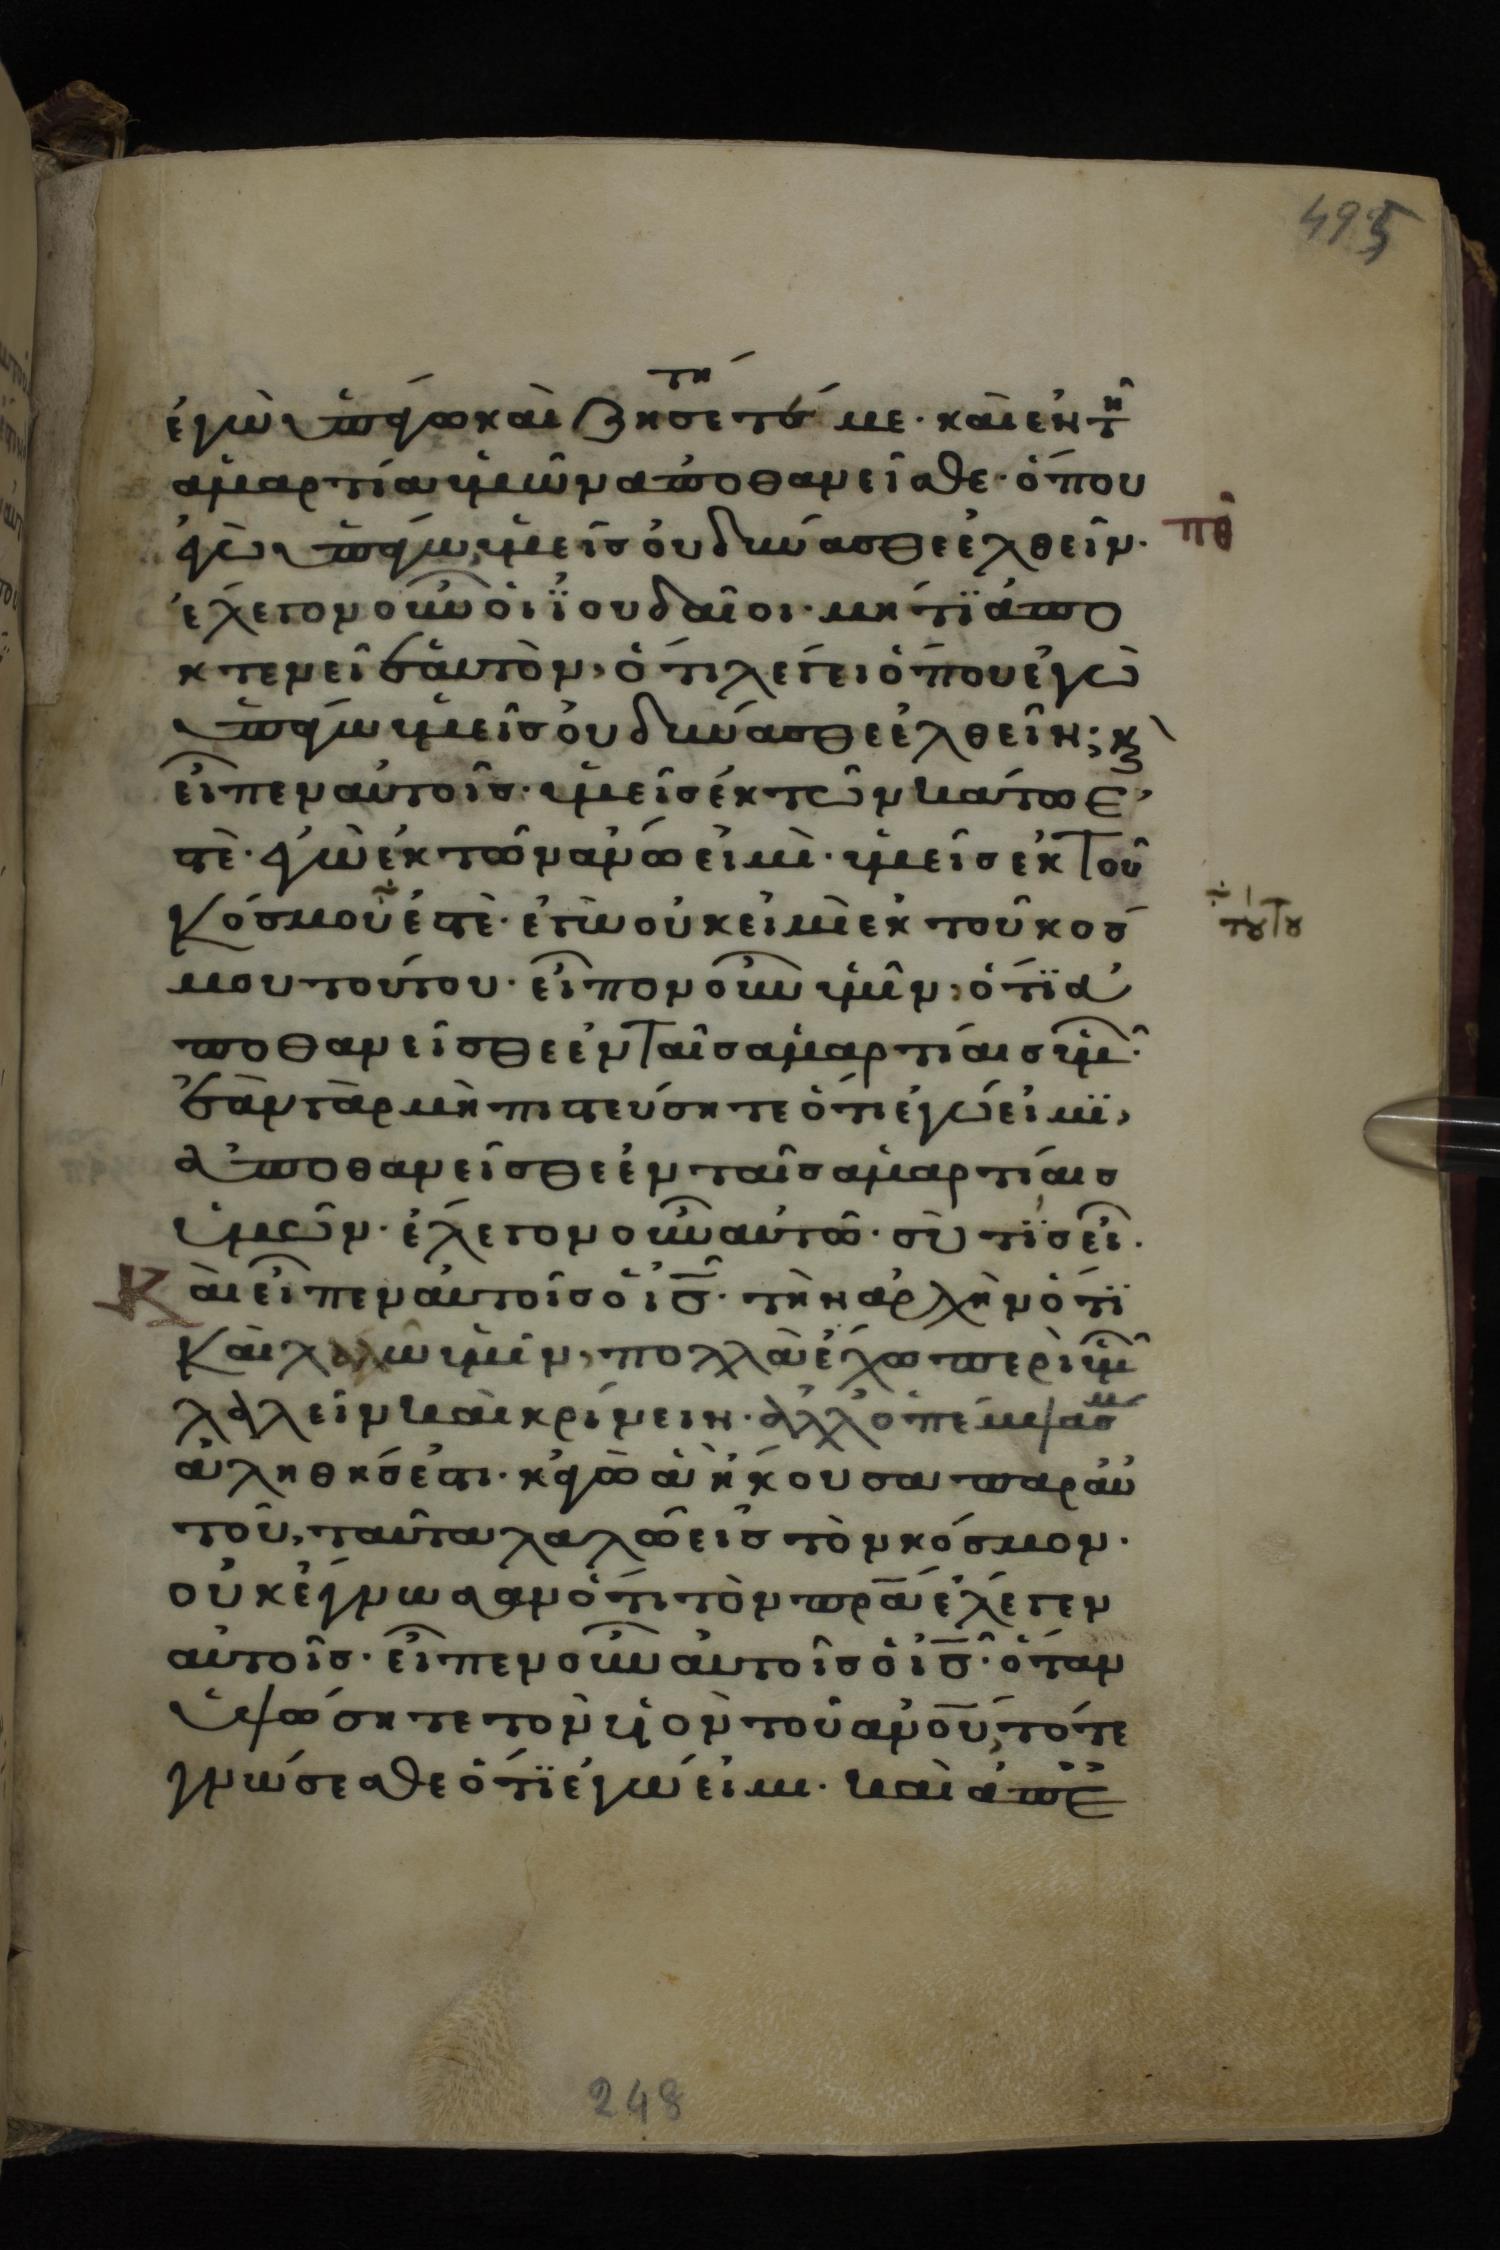 495
ἐγὼ ὑπάγω καὶ ζητήσετέ με· καὶ ἐν τῆ
ἁμαρτία ὑμῶν ἀποθανεῖσθε· ὅπου
ἐγὼ ὑπάγω, ὑμεῖς οὐ δύνασθε ἐλθεῖν·
πθ
ἔλεγον οὖν οἱ ϊουδαῖοι· μήτϊ ἀπο
κτενεῖ ἑαυτὸν, ὅτι λέγει ὅπου ἐγὼ
ὑπάγω ὑμεῖς οὐ δύνασθε ἐλθεῖν; κ
εἶπεν αὐτοῖς· ὑμεῖς ἐκ τῶν κάτω ἐ
στὲ· ἐγὼ ἐκ τῶν ἄνω εἰμὶ· ὑμεῖς ἐκ τοῦ
κόσμου ἐστὲ· ἐγὼ οὐκ εἰμὶ ἐκ τοῦ κόσ
τούτου
μου τούτου· εἶπον οὖν ὑμῖν, ὅτϊ ἀ
ποθανεῖσθε ἐν ταῖς ἁμαρτίαις ὑμ·
ἐὰν γὰρ μὴ πιστεύσητε ὅτι ἐγώ εἰμϊ,
ἀποθανεῖσθε ἐν ταῖς ἁμαρτίαις
ὑμῶν· ἔλεγον οὖν αὐτῶ· σὺ τίς εἶ·
Καὶ εἶπεν αὐτοῖς ὁ ις· τὴν ἀρχὴν ὅτϊ
καὶ λαλῶ ὑμῖν, πολλὰ ἔχω περὶ ὑμ
λαλεῖν καὶ κρίνειν· ἀλλ ὁ πέμψας μ
ἀληθής ἐστι· κἀγὼ ἃ ἤκουσα παρ αὐ
τοῦ, ταῦτα λαλῶ εἰς τὸν κόσμον·
οὐκ ἔγνωσαν ὅτι τὸν πρα ἔλεγεν
αὐτοῖς· εἶπεν οὖν αὐτοῖς ὁ ις· ὅταν
ὑψώσητε τὸν ὑὸν τοῦ ανου, τότε
γνώσεσθε ὅτϊ ἐγώ εἰμι· καὶ ἀπ ἐ
248